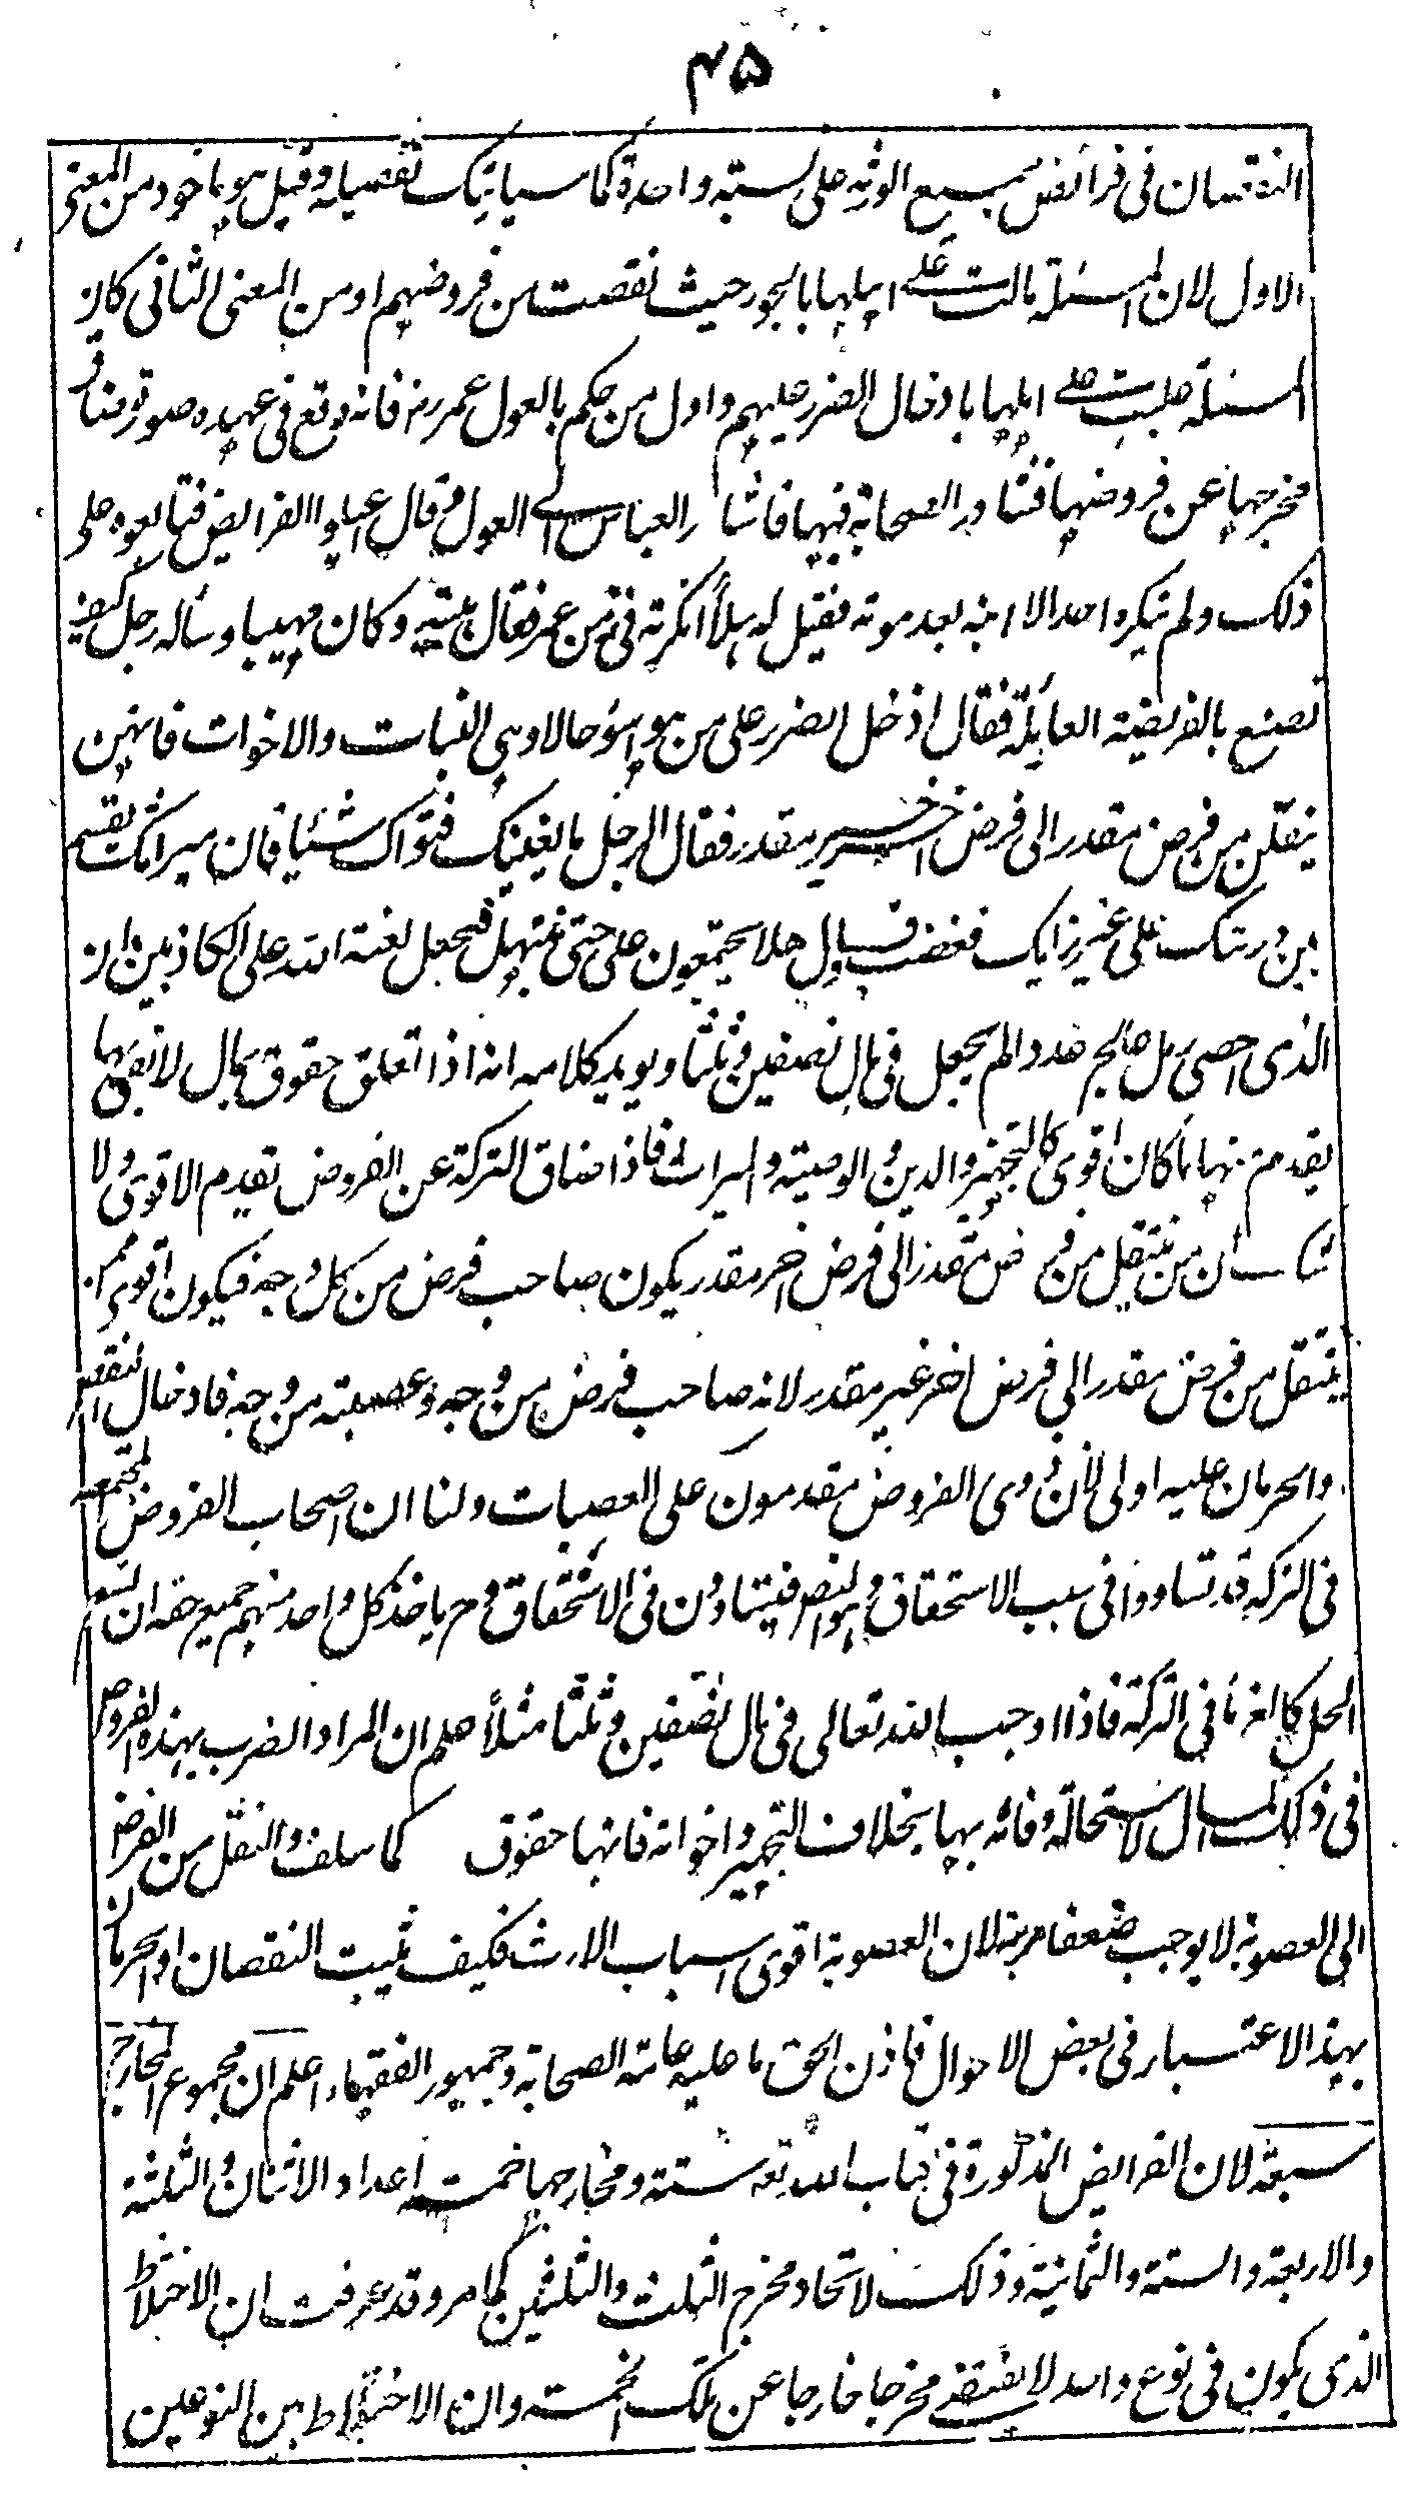 ٤٥
النقصان في فرائض جميع الورثة على نسبة واحدة كما سياتيك تفصيله وقيل هو ماخوذ من المعنى
الاول لان المسئلة مالت على اهلها بالجور حيث نقصت من فروضهم او من المعنى الثاني كان
المسئلة غلبت على اهلها بادخال الضرر عليهم واول من حكم بالعول عمر رض فانه وقع في عهده صورة ضاق
مخرجها عن فروضها فشاور الصحابة فيها فاشار العباس الى العول وقال اعيلوا الفرايض فتابعوه على
ذلك ولم ينكره احد الا ابنه بعد موته فقيل له هلا انكرته في زمن عمر فقال هبته وكان مهيبا وساله رجل كيف
تصنع بالفريضة العايلة فقال ادخل الضرر على من هو اسوء حالا وهي البنات والاخوات فانهن
ينقلن من فرض مقدر الى فرض اخر غير مقدر فقال الرجل ما يغنيك فتواك شيئا فان ميراثك يقسم
بين ورثتك على غير رايك فغضب وقال هلا يجتمعون على حتى نبتهل فنجعل لعنة الله على الكاذبين ان
الذي احصى رمل عالج عددا لم يجعل في مال نصفين وثلثا ويويد كلامه انه اذا تعلق حقوق بمال لا تفي بها
يقدم منها ما كان اقوى كالتجهيز والدين والوصية والميراث فاذا ضاق التركة عن الفروض تقدم الاقوى ولا
شك ان من ينتقل من فرض مقدر الى فرض اخر مقدر يكون صاحب فرض من كل وجه فيكون اقوى ممن
ينتقل من فرض مقدر الى فرض اخر غير مقدر لانه صاحب فرض من وجه وعصبة من وجه فادخال النقص
والحرمان عليه اولى لان ذوى الفروض مقدمون على العصبات ولنا ان اصحاب الفروض المجتمعة
في التركة قد تساووا في سبب الاستحقاق وهو النص فيتساوون في الاستحقاق وح ياخذ كل واحد منهم جميع حقه ان اتسع
المحل كالغرما في التركة فاذا اوجب الله تعالى في مال نصفين وثلثا مثلا علم ان المراد الضرب بهذه الفروض
في ذلك المال لاستحالة وفائه بها بخلاف التجهيز واخواته فانها حقوق كما سلف والنقل من الفرض
الى العصوبة لا يوجب ضعفا مرية لان العصوبة اقوى اسباب الارث فكيف يثبت النقصان او الحرمان
بهذا الاعتبار في بعض الاحوال فاذن الحق ما عليه عامة الصحابة وجمهور الفقهاء اعلم ان مجموع المخارج
سبعة لان الفرايض المذكورة في كتاب الله تع ستة ومخارجها خمسة اعداد الاثنان والثلثة
والاربعة والستة والثمانية وذلك لاتحاد مخرج الثلث والثلثين كما مر وقد عرفت ان الاختلاط
الذي يكون في نوع واحد لا يقتضي مخرجا خارجا عن تلك الخمسة وان الاختلاط بين النوعين